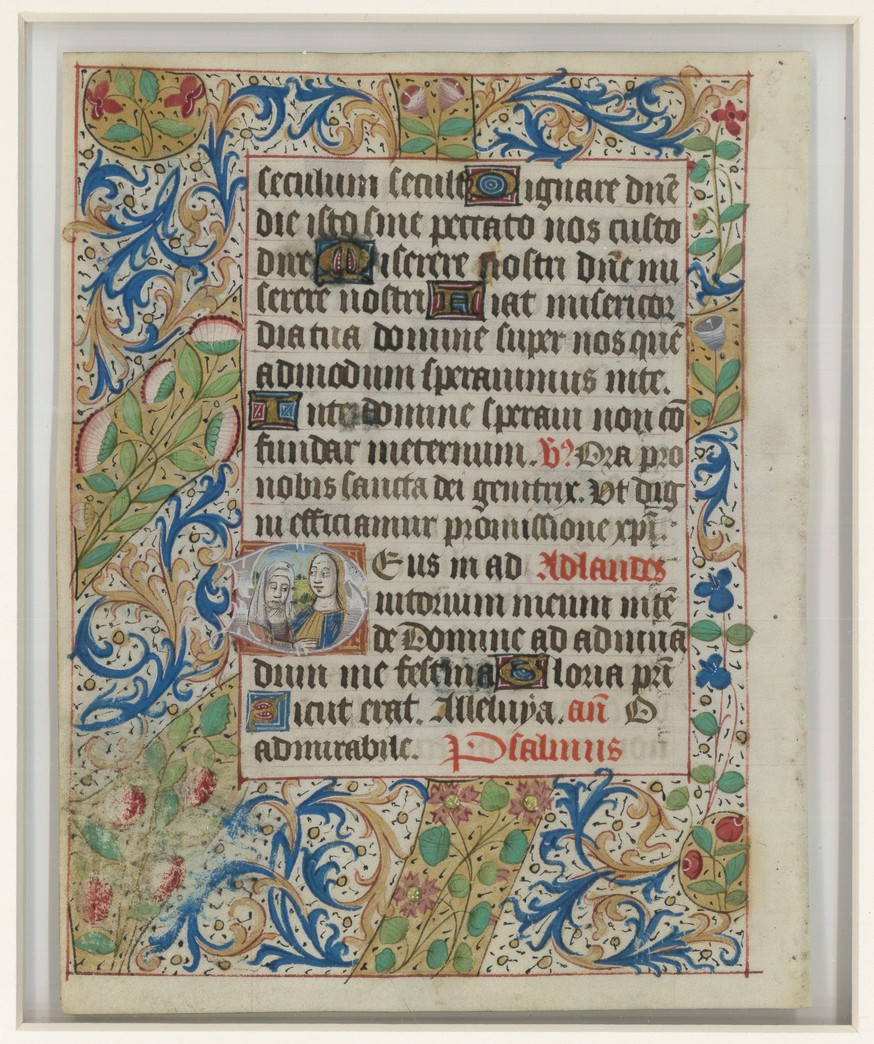 seculum secul̄ Dignare dn̄e
die isto sine peccato nos custo
dire Miserere nostri dn̄e mi
serere nostri Fiat misericor
dia tua domine super nos quē
admodum sperauimus inte.
Inte domine speraui non cō
fundar ineternum. V̷ Ora pro
nobis sancta dei genitrix. Vt dig
ni efficiamur promissione xp̄i.
Deus in ad Adlaudes
iutorium meum intē
de Domine ad adiuuā
dum me festina Gloria pr̄i
Sicut erat. Alleluya. an̄ O
admirabile. Psalmus